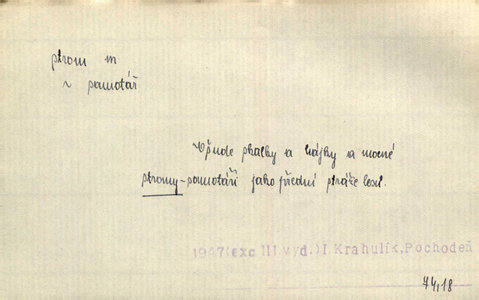 strom m
~ samotář
Všude skalky a hájky a mocné
stromy-samotáři jako přední stráže lesů.
1947(exc III.vyd.)I.Krahulík,Pochodeň
74,18